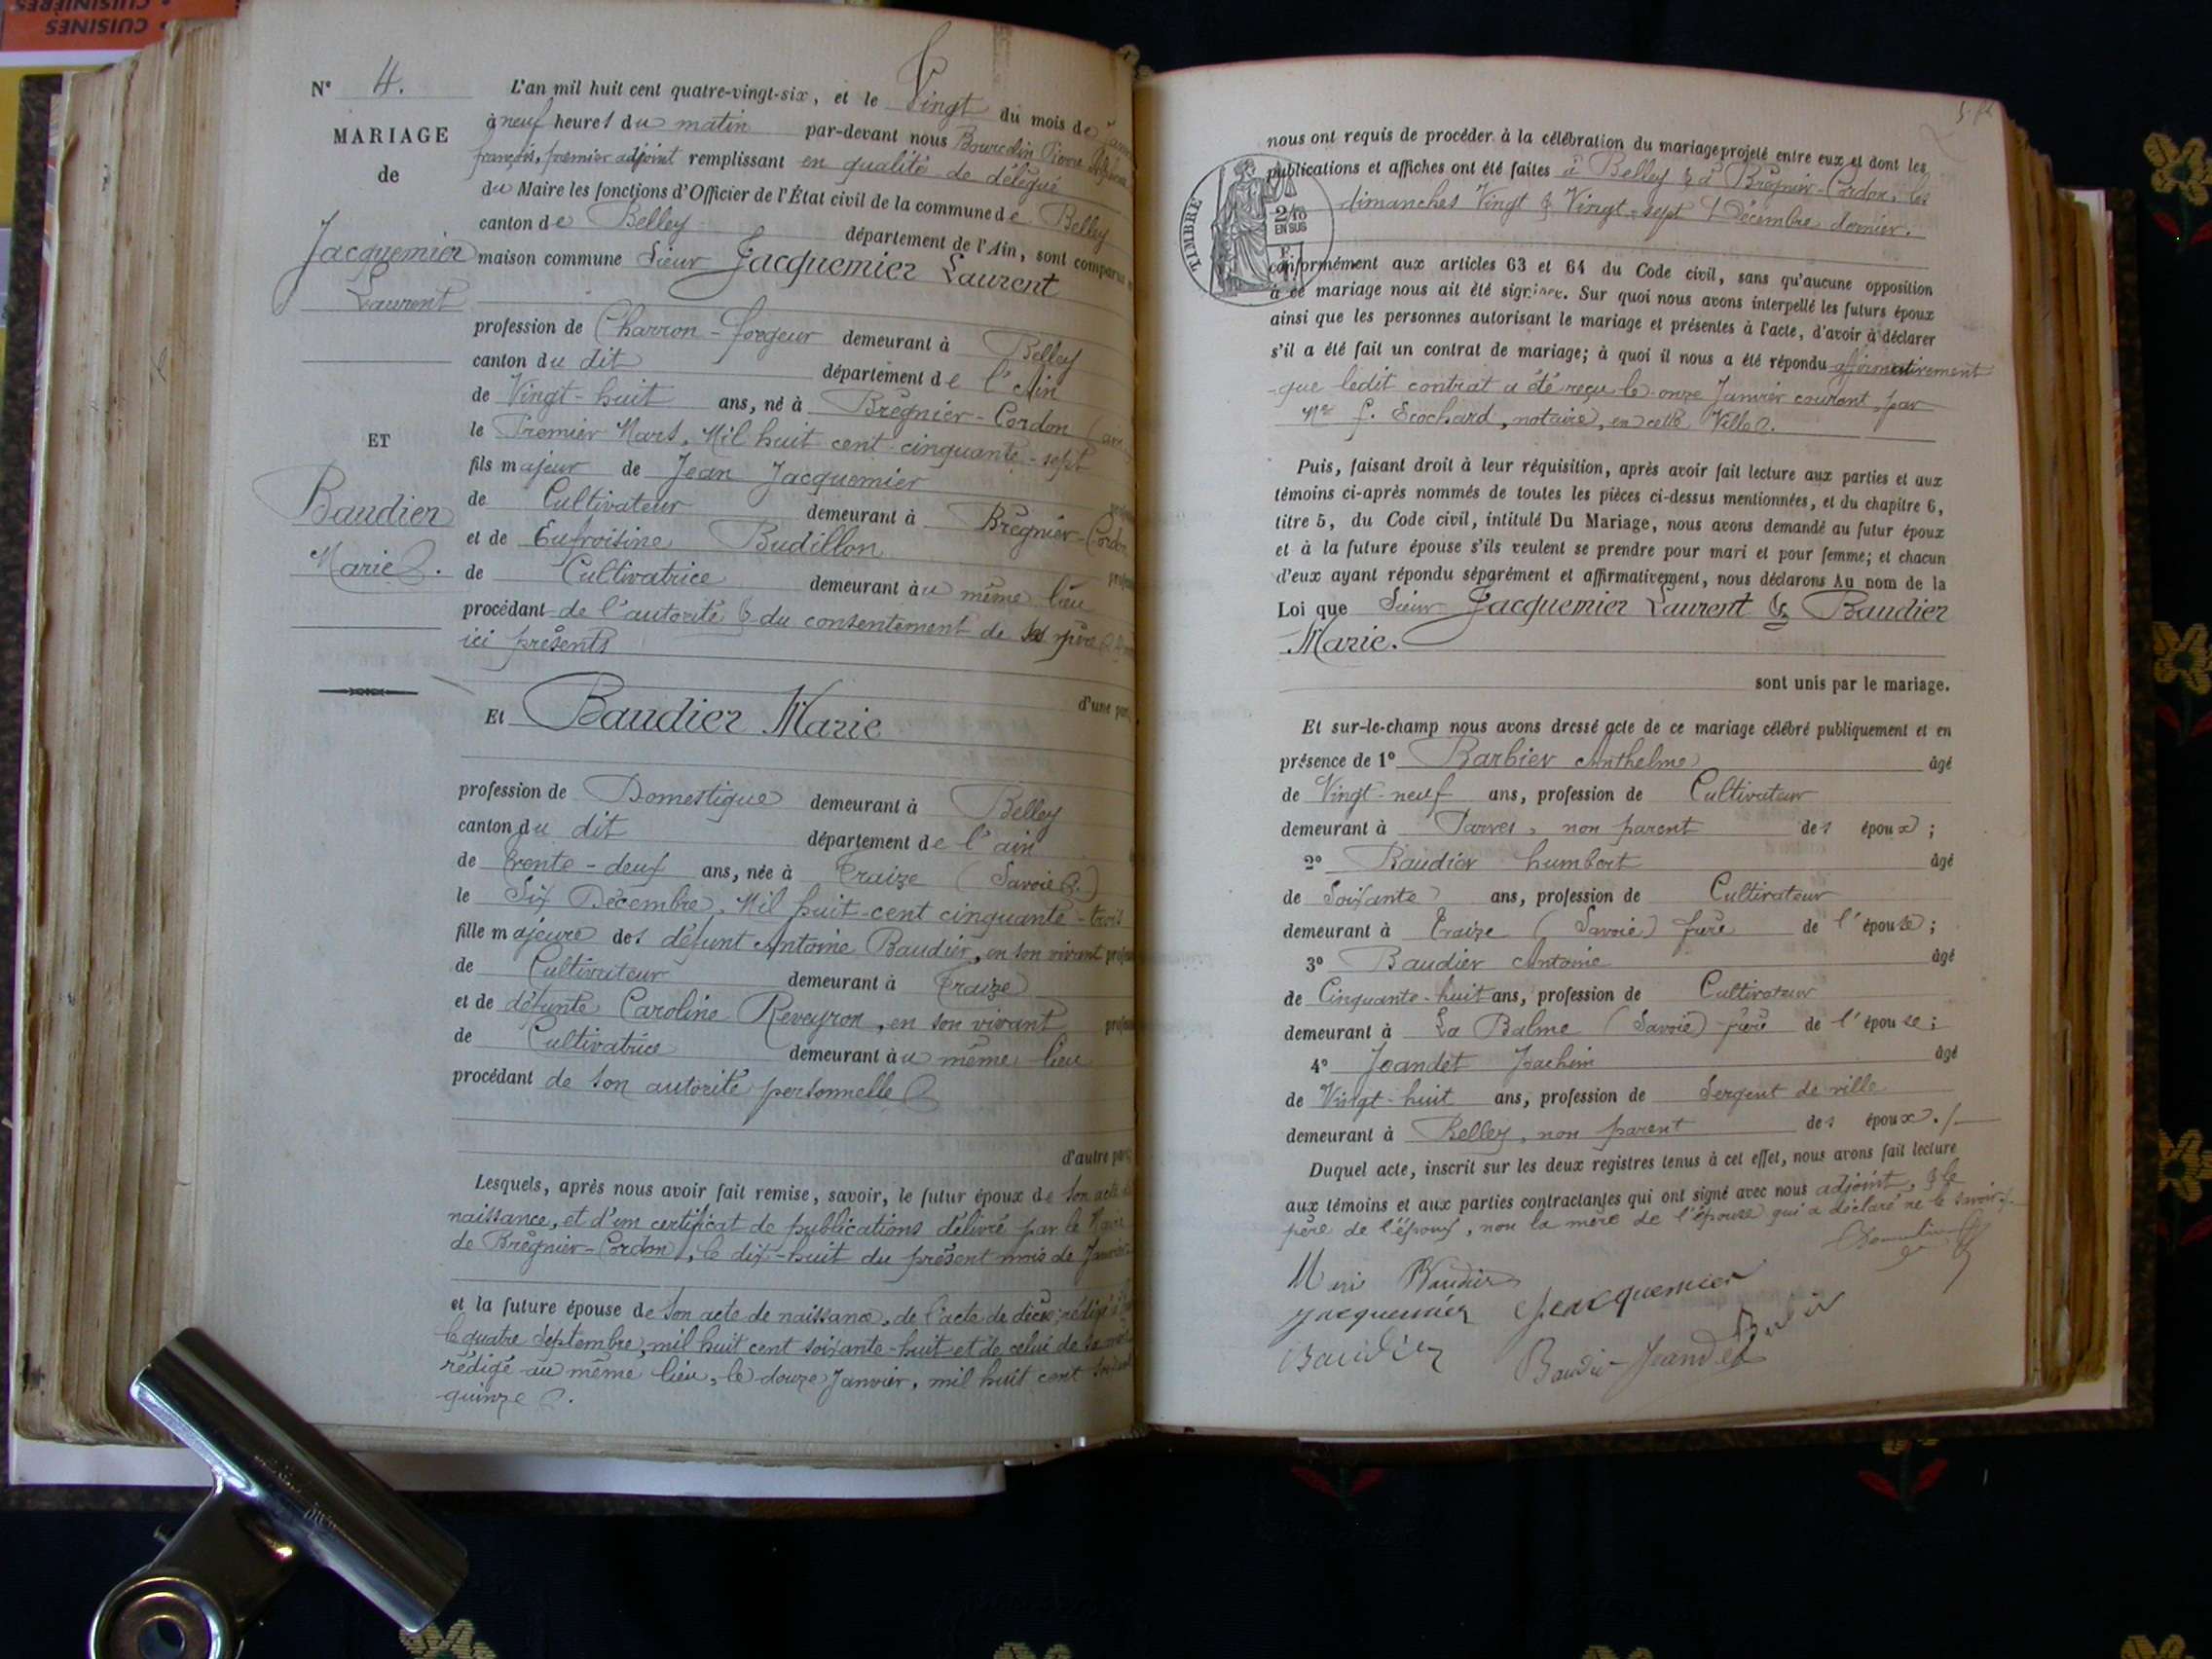 CUISINES
N° 4.
MARIAGE
de
Jacquemier
Laurent
ET
Baudier
Marie.
L'an mil huit cent quatre-vingt-six, et le Vingt du mois de
à neuf heures du matin par-devant nous Bourdin Pierre
françois, premier adjoint remplissant en qualité de délégué
du Maire les fonctions d'Officier de l'État civil de la commune de Belley
canton de Belley département de l'Ain, sont comparus
maison commune Sieur Jacquemier Laurent
profession de Charron-forgeur demeurant à Belley
canton du dit département de l'Ain
de Vingt-huit ans, né à Brégnier-Cordon
le Premier Mars, Mil huit cent cinquante-sept
fils majeur de Jean Jacquemier
de Cultivateur demeurant à Brégnier-Cordon
et de Eufroisine Budillon
de Cultivatrice demeurant au même lieu
procédant de l'autorité & du consentement de ses père
ici présents
d'une part,
Et Baudier Marie
profession de Domestique demeurant à Belley
canton du dit département de l'ain
de trente-deux ans, née à Traize (Savoie.)
le Six Décembre, Mil huit-cent cinquante-trois
fille majeure des défunt Antoine Baudier, en son vivant
de Cultivateur demeurant à Traize
et de défunte Caroline Reveyron, en son vivant
de Cultivatrice demeurant au même lieu
procédant de son autorité personnelle
d'autre part,
Lesquels, après nous avoir fait remise, savoir, le futur époux de son acte de
naissance, et d'un certificat de publications délivré par le Maire
de Brégnier-Cordon, le dix-huit du présent mois de Janvier
et la future épouse de son acte de naissance, de l'acte de décès, rédigé
le quatre Septembre, mil huit cent soixante-huit et de celui de sa
rédigé au même lieu, le douze Janvier, mil huit cent
quinze.
TIMBRE
2/10
EN SUS
nous ont requis de procéder à la célébration du mariage projeté entre eux et dont les
publications et affiches ont été faites à Belley & à Brégnier-Cordon, les
dimanches Vingt & Vingt-sept Décembre dernier.
conformément aux articles 63 et 64 du Code civil, sans qu'aucune opposition
à ce mariage nous ait été signifiée. Sur quoi nous avons interpellé les futurs époux
ainsi que les personnes autorisant le mariage et présentes à l'acte, d'avoir à déclarer
s'il a été fait un contrat de mariage; à quoi il nous a été répondu affirmativement
que ledit contrat a été reçu le onze Janvier courant, par
Me f. Ecochard, notaire, en cette Ville.
Puis, faisant droit à leur réquisition, après avoir fait lecture aux parties et aux
témoins ci-après nommés de toutes les pièces ci-dessus mentionnées, et du chapitre 6,
titre 5, du Code civil, intitulé Du Mariage, nous avons demandé au futur époux
et à la future épouse s'ils veulent se prendre pour mari et pour femme; et chacun
d'eux ayant répondu séparément et affirmativement, nous déclarons Au nom de la
Loi que Sieur Jacquemier Laurent & Baudier
Marie.
sont unis par le mariage.
Et sur-le-champ nous avons dressé acte de ce mariage célébré publiquement et en
présence de 1° Barbier Anthelme âgé
de Vingt-neuf ans, profession de Cultivateur
demeurant à Parves, non parent des époux;
2° Baudier humbert âgé
de Soixante ans, profession de Cultivateur
demeurant à Traize (Savoie) frère de l'épouse;
3° Baudier Antoine âgé
de Cinquante-huit ans, profession de Cultivateur
demeurant à La Balme (Savoie) frère de l'épouse;
4° Jeandet Joachim âgé
de Vingt-huit ans, profession de Sergent de ville
demeurant à Belley, non parent des époux./
Duquel acte, inscrit sur les deux registres tenus à cet effet, nous avons fait lecture
aux témoins et aux parties contractantes qui ont signé avec nous adjoint, & le
père de l'époux, non la mère de l'épouse qui a déclaré ne le savoir./
Marie Baudier
Jacquemier Jacquemier
Baudier Baudier Jeandet